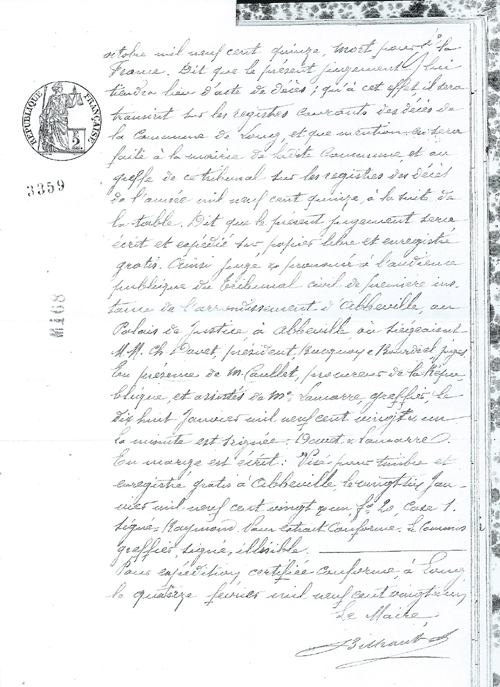 octobre mil neuf cent quinze, mort pour la
France. Dit que le présent jugement lui
tiendra lieu d'acte de décès; qu'à cet effet il sera
transcrit sur les registres courants des décès de
la commune de Long, et que mention en sera
faite à la mairie de ladite commune et au
greffe de ce tribunal sur les registres des décès
de l'année mil neuf cent quinze, à la suite de
la table. Dit que le présent jugement sera
écrit et expédié sur papier libre et enregistré
gratis. Ainsi jugé & prononcé à l'audience
publique du tribunal civil de première ins-
tance de l'arrondissement d'Abbeville, au
Palais de Justice à Abbeville où siégeaient
M.M. Ch. Davet, président, Bucquoy & Bourdrel juges,
En présence de M. Caullet, procureur de la Répu-
blique, et assistés de Me. Lamarre, greffier, le
Dix huit Janvier mil neuf cent vingt & un
la minute est signée: Davet & Lamarre.
En marge est écrit: Visé pour timbre et
enregistré gratis à Abbeville, le vingt six Jan-
vier mil neuf cent vingt & un, fo 20, Case 1.
signé: Raymond. Pour extrait conforme. Le Commis
greffier, signé, illisible.
Pour expédition certifiée conforme, à Long
le quatorze février mil neuf cent vingt & un
Le Maire
RÉPUBLIQUE FRANÇAISE
2
3359
M168